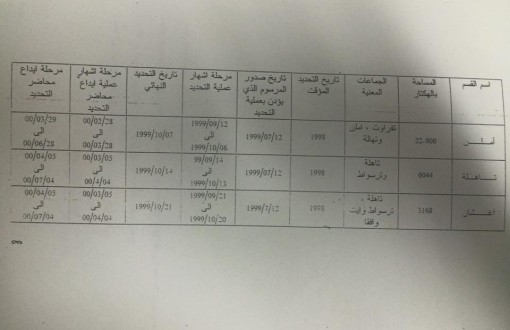 اسم القسم | المساحة بالهكتار | الجماعات المعنية | تاريخ التحديد المؤقت | تاريخ صدور المرسوم الذي يؤذن بعملية التحديد | مرحلة اشهار عملية التحديد | تاريخ التحديد النهائي | مرحلة اشهار عملية ايداع محاضر التحديد | مرحلة ايداع محاضر التحديد
22-900 | تفراوت ، املن وتهالة | 1998 | 1999/07/12 | 1999/09/12 الى 1999/10/06 | 1999/10/07 | 00/02/28 الى 00/03/28 | 00/03/29 الى 00/06/28
6044 | تاهلة وترسواط | 1998 | 1999/07/12 | 99/09/14 الى 1999/10/13 | 1999/10/14 | 00/03/05 الى 00/4/04 | 00/04/05 الى 00/07/04
3168 | تاهلة ، ترسواط وايت وافقا | 1998 | 1999/7/12 | 1999/09/21 الى 1999/10/20 | 1999/10/21 | 00/03/05 الى 00/04/04 | 00/04/05 الى 00/07/04